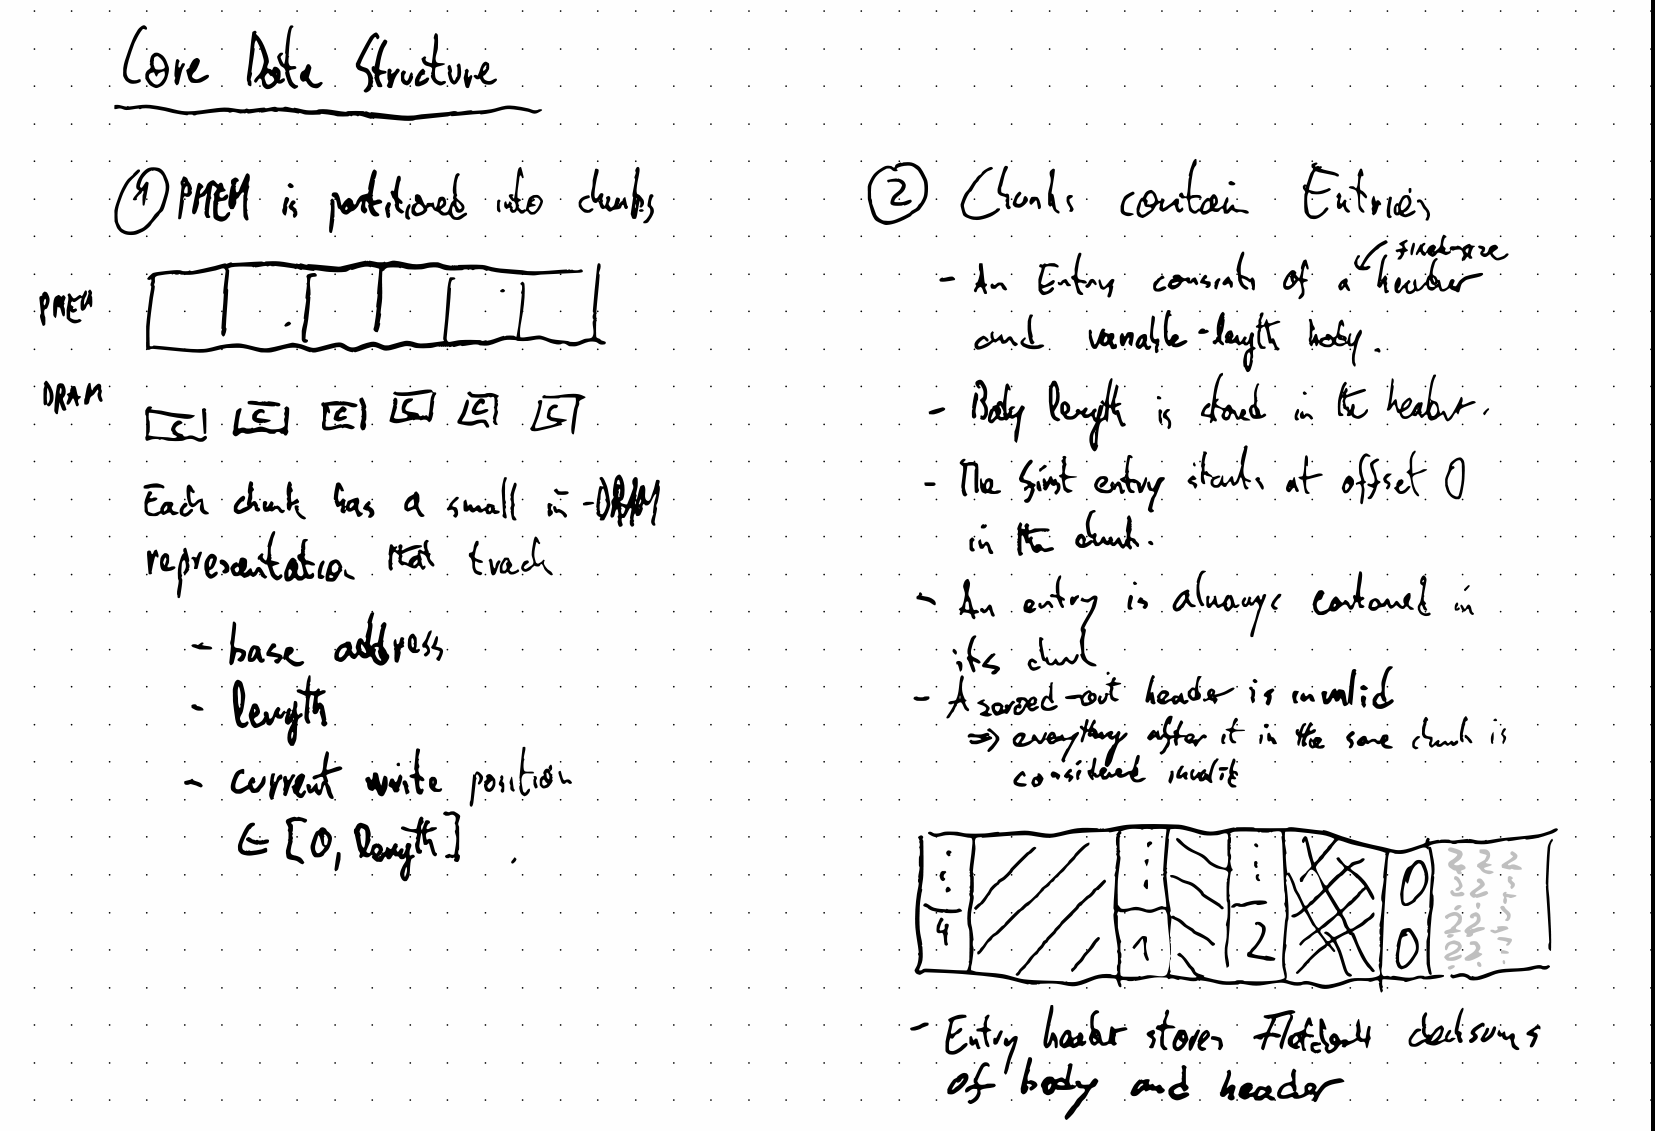 Core Data Structure
① PMEM is partitioned into chunks
PMEM
DRAM
C C C C C C
Each chunk has a small in-DRAM
representation that track
- base address
- length
- current write position
∈ [0, length]
② Chunks contain Entries
fixed-size
- An Entry consists of a header
and variable-length body.
- Body length is stored in the header.
- The first entry starts at offset 0
in the chunk.
- An entry is always contained in
its chunk
- A zeroed-out header is invalid
⇒ everything after it in the same chunk is
considered invalid
⋮ ⋮ ⋮ 0 ? ? ?
? ? ?
4 1 2 0 ? ? ?
? ? ?
- Entry header stores Fletcher4 checksums
of body and header